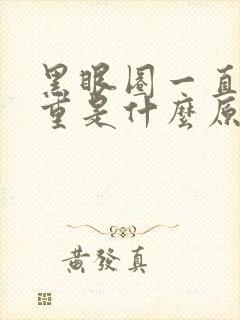 黑眼圈一直
重是什麼原
黃發真